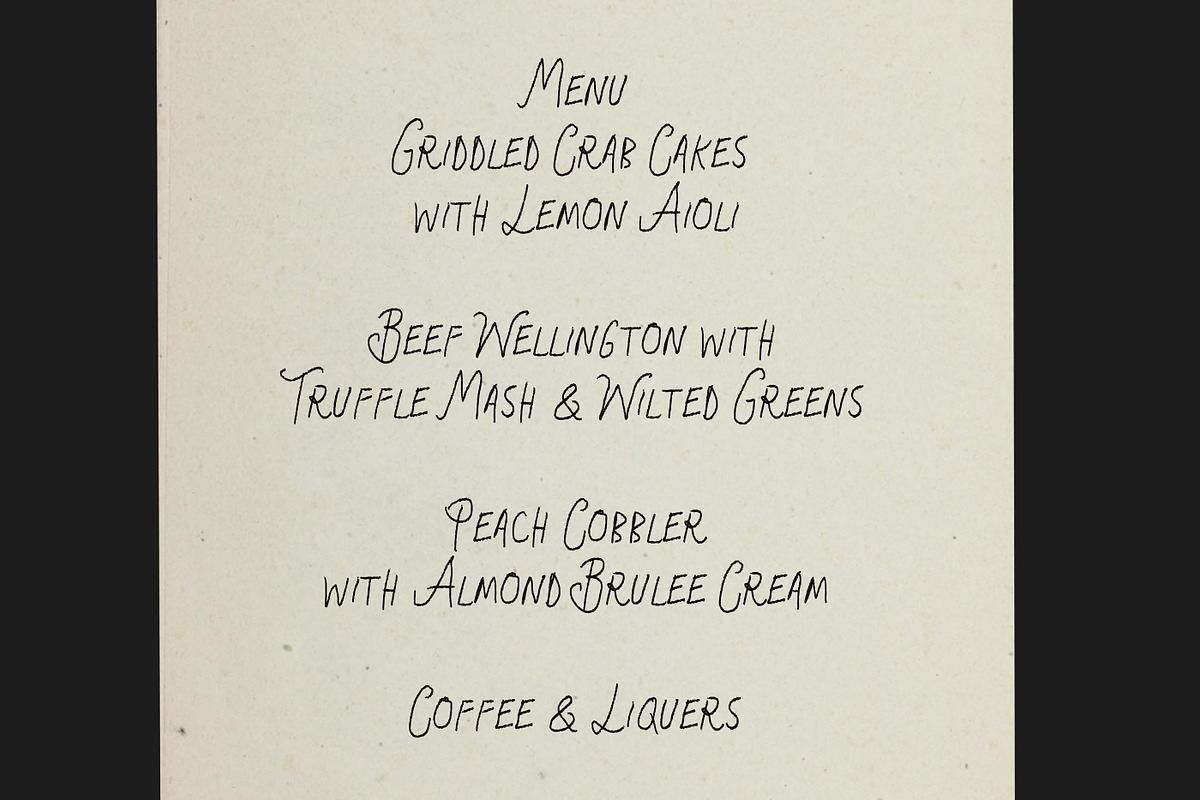 Menu
Griddled Crab Cakes
with Lemon Aioli
Beef Wellington with
Truffle Mash & Wilted Greens
Peach Cobbler
with Almond Brulee Cream
Coffee & Liquers